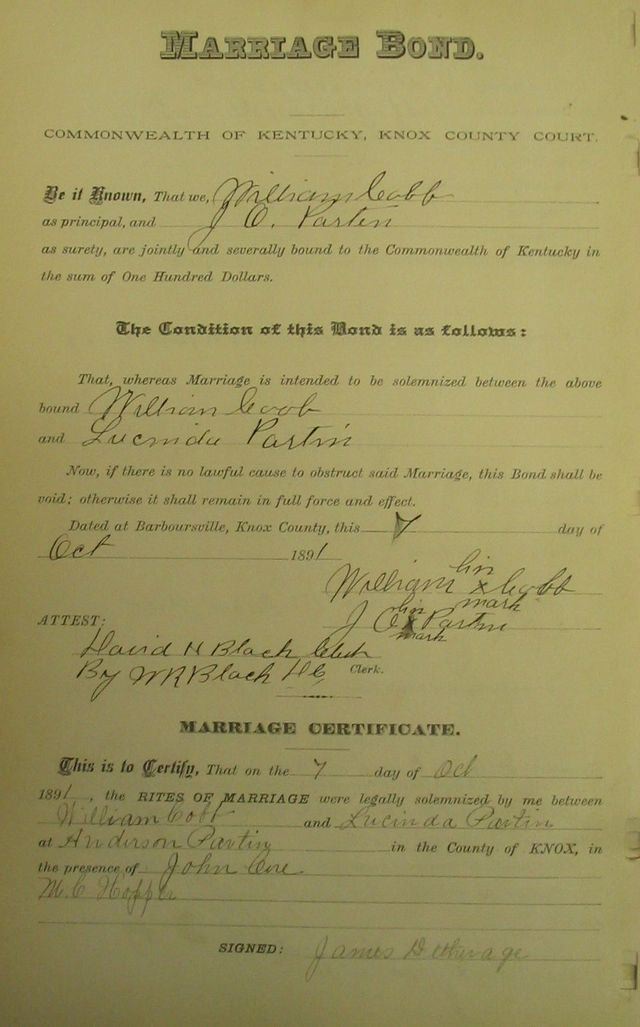 MARRIAGE BOND.
COMMONWEALTH OF KENTUCKY, KNOX COUNTY COURT.
Be it Known, That we, William Cobb
as principal, and J O. Partin
as surety, are jointly and severally bound to the Commonwealth of Kentucky in
the sum of One Hundred Dollars.
The Condition of this Bond is as follows:
That, whereas Marriage is intended to be solemnized between the above
bound William Cobb
and Lucinda Partin
Now, if there is no lawful cause to obstruct said Marriage, this Bond shall be
void; otherwise it shall remain in full force and effect.
Dated at Barboursville, Knox County, this 7 day of
Oct 1891
his
William x Cobb
mark
his
J O x Partin
mark
ATTEST:
David N Black Clerk
By WR Black DC Clerk.
MARRIAGE CERTIFICATE.
This is to Certify, That on the 7 day of Oct
1891, the RITES OF MARRIAGE were legally solemnized by me between
William Cobb and Lucinda Partin
at Anderson Partin in the County of KNOX, in
the presence of John
M. C Hopper
SIGNED: James